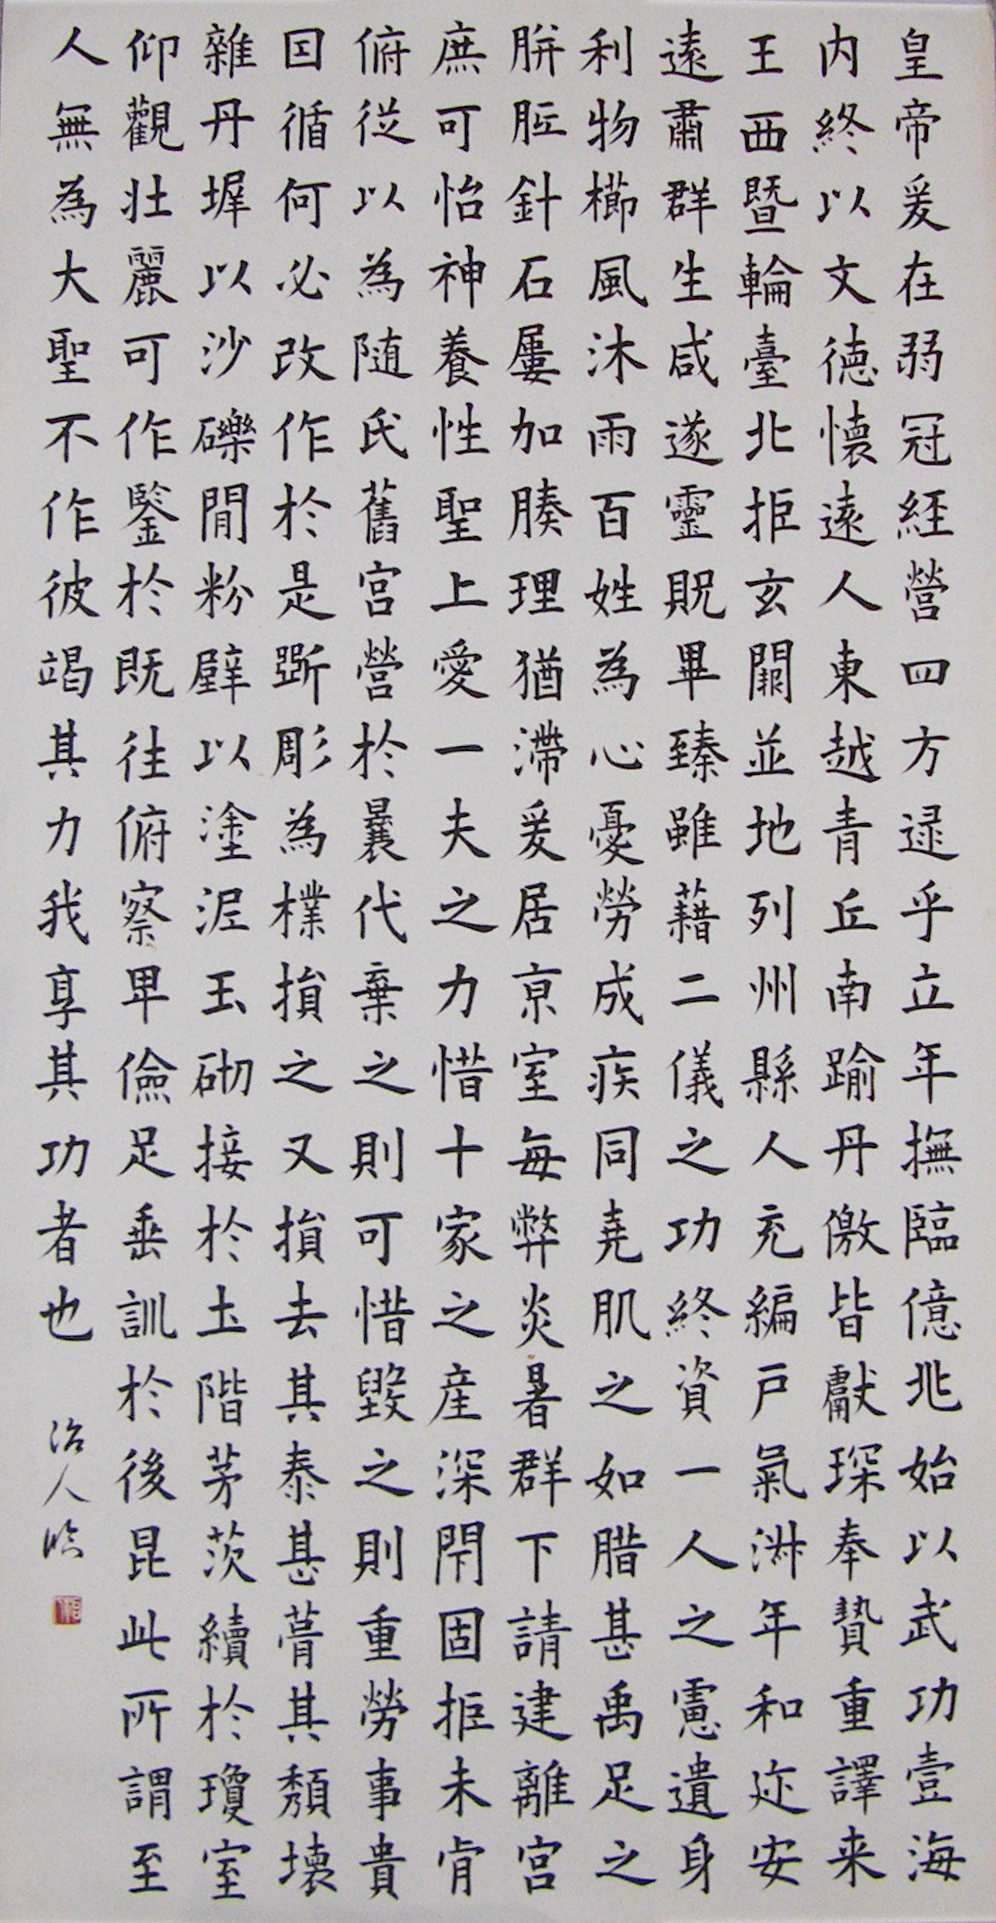 皇帝爰在弱冠經營四方逮乎立年撫臨億兆始以武功壹海
内終以文德懷遠人東越青丘南踰丹徼皆獻琛奉贄重譯来
王西暨輪臺北拒玄闕並地列州縣人充編戶氣淑年和迩安
遠肅群生咸遂靈貺畢臻雖藉二儀之功終資一人之慮遺身
利物櫛風沐雨百姓為心憂勞成疾同堯肌之如腊甚禹足之
胼胝針石屢加腠理猶滯爰居京室每弊炎暑群下請建離宮
庶可怡神養性聖上愛一夫之力惜十家之産深閇固拒未肯
俯從以為隨氏舊宮營於曩代棄之則可惜毀之則重勞事貴
因循何必改作於是斲彫為樸損之又損去其泰甚葺其頹壞
雜丹墀以沙礫間粉壁以塗泥玉砌接於土階茅茨續於瓊室
仰觀壯麗可作鑒於既往俯察卑儉足垂訓於後昆此所謂至
人無為大聖不作彼竭其力我享其功者也
治人临